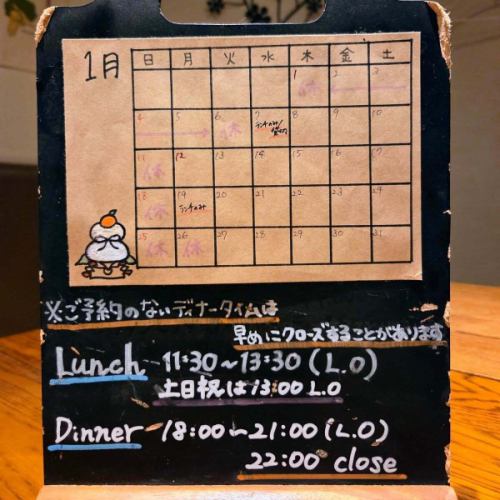 1月
日 月 火 水 木 金 土
1 2 3
休
4 5 6 7 8 9 10
休 ランチのみ
11 12 13 14 15 16 17
休
18 19 20 21 22 23 24
休 ランチのみ
25 26 27 28 29 30 31
休 休
※ご予約のないディナータイムは
早めにクローズすることがあります
Lunch 11:30~13:30(L.O)
土日祝は13:00 L.O
Dinner 18:00~21:00(L.O)
22:00 close